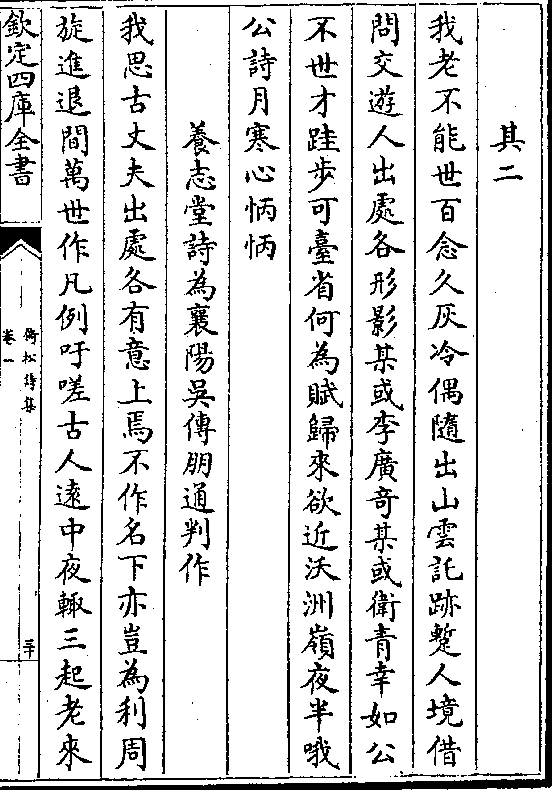 其二
我老不能世百念久灰冷偶隨出山雲託跡蹔人境借
問交遊人出處各形影某或李廣奇某或衛青幸如公
不世才跬步可臺省何為賦歸來欲近沃洲嶺夜半哦
公詩月寒心怲怲
養志堂詩為襄陽吳傳朋通判作
我思古丈夫出處各有意上焉不作名下亦豈為利周
旋進退間萬世作凡例吁嗟古人遠中夜輙三起老來
欽定四庫全書
倚松詩集
卷一
三十